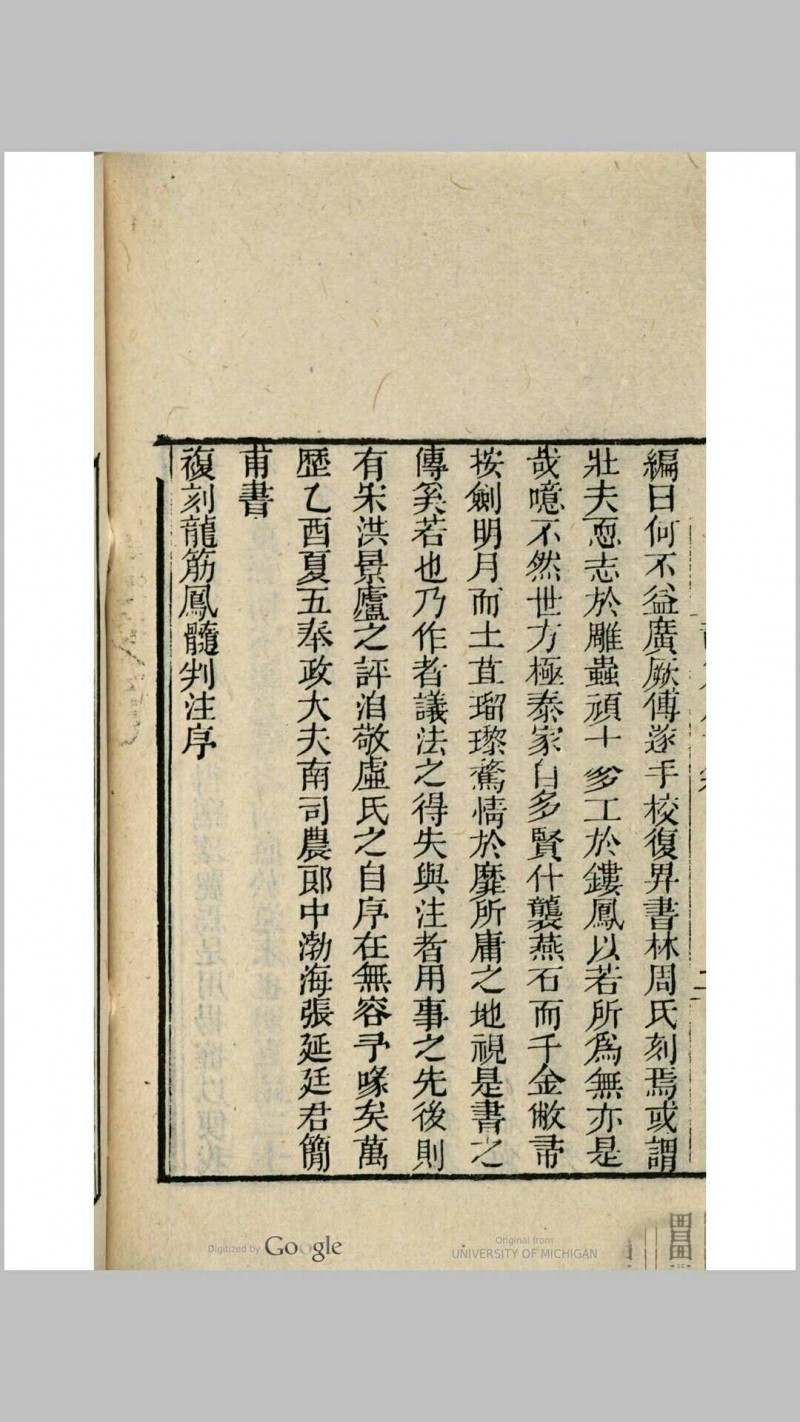 編曰何不益廣厥傳遂手校復畀書林周氏刻焉或謂
壯夫恧志於雕蟲頑十爹工於鏤鳳以若所爲無亦是
哉噫不然世方極泰家自多賢什襲燕石而千金敝帚
按劍明月而土苴瑠瓈驚情於靡所庸之地視是書之
傳奚若也乃作者議法之得失與注者用事之先後則
有宋洪景盧之評洎敬虛氏之自序在無容予喙矣萬
歷乙酉夏五奉政大夫南司農郎中渤海張延廷君簡
甫書
複刻龍筋鳳髓判注序
Digitized by Google
Original from
UNIVERSITY OF MICHIGAN